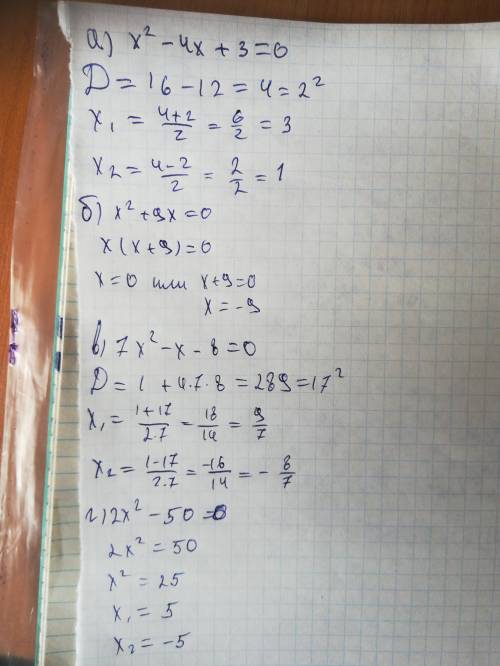 а) x² - 4x + 3 = 0
D = 16 - 12 = 4 = 2²
x₁ = (4+2)/2 = 6/2 = 3
x₂ = (4-2)/2 = 2/2 = 1
б) x² + 9x = 0
x(x+9) = 0
x = 0 или x+9=0
x = -9
в) 7x² - x - 8 = 0
D = 1 + 4·7·8 = 289 = 17²
x₁ = (1+17)/(2·7) = 18/14 = 9/7
x₂ = (1-17)/(2·7) = -16/14 = -8/7
г) 2x² - 50 = 0
2x² = 50
x² = 25
x₁ = 5
x₂ = -5